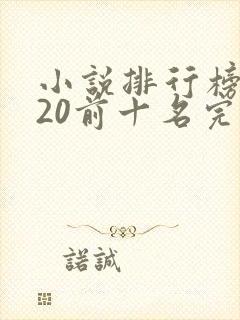 小説排行榜
20前十名完
諾誠